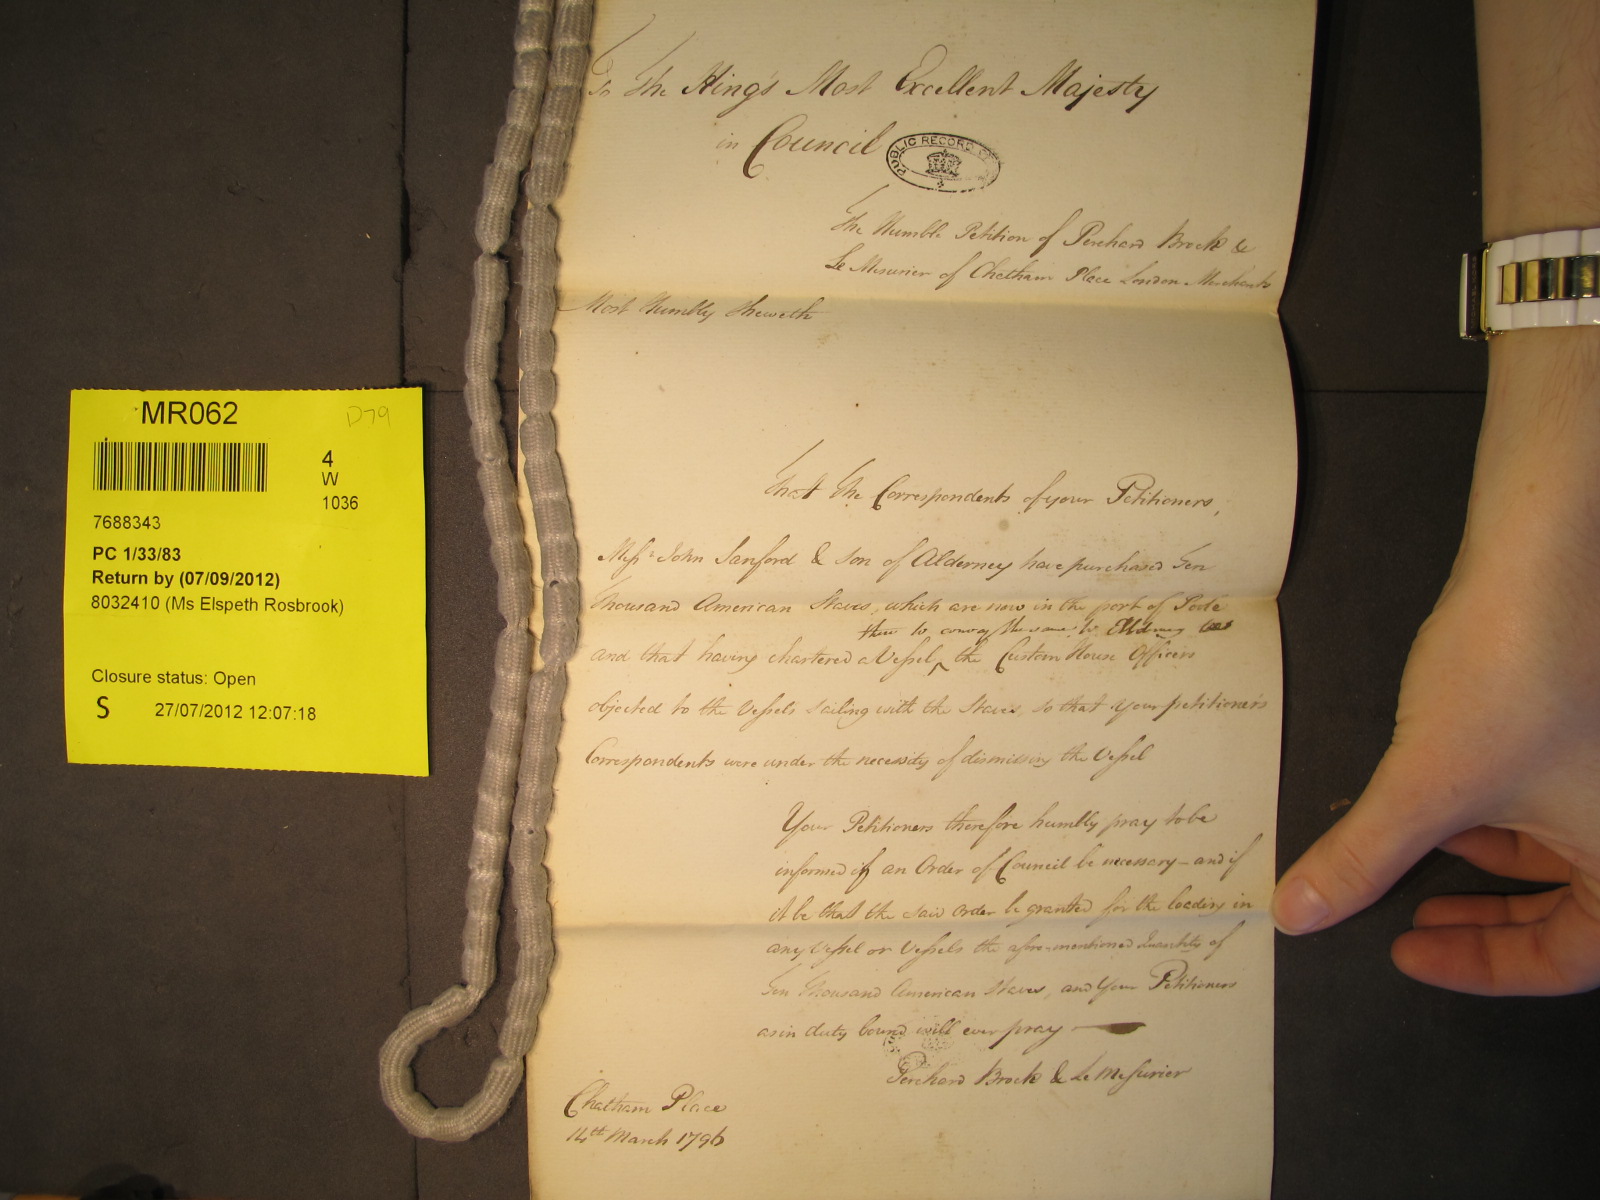 MR062
D79
4
W
1036
7688343
PC 1/33/83
Return by (07/09/2012)
8032410 (Ms Elspeth Rosbrook)
Closure status: Open
S 27/07/2012 12:07:18
To The King's Most Excellent Majesty
in Council
PUBLIC RECORD
The Humble Petition of Perchard Brock &
Le Mesurier of Chatham Place London Merchants
Most Humbly Sheweth
That The Correspondents of your Petitioners,
Messrs John Sanford & Son of Alderney have purchased Ten
Thousand American Staves, which are now in the port of Poole
there to convey the same to Alderney
and that having chartered a Vessel ^ the Custom House Officers
objected to the Vessels sailing with the Staves, so that your petitioners
Correspondents were under the necessity of dismissing the Vessel
Your Petitioners therefore humbly pray to be
informed if an Order of Council be necessary - and if
it be that the said Order be granted for the loading in
any Vessel or Vessels the afore-mentioned Quantity of
Ten Thousand American Staves, and Your Petitioners
as in duty bound will ever pray
Perchard Brock & Le Mesurier
Chatham Place
14th March 1796